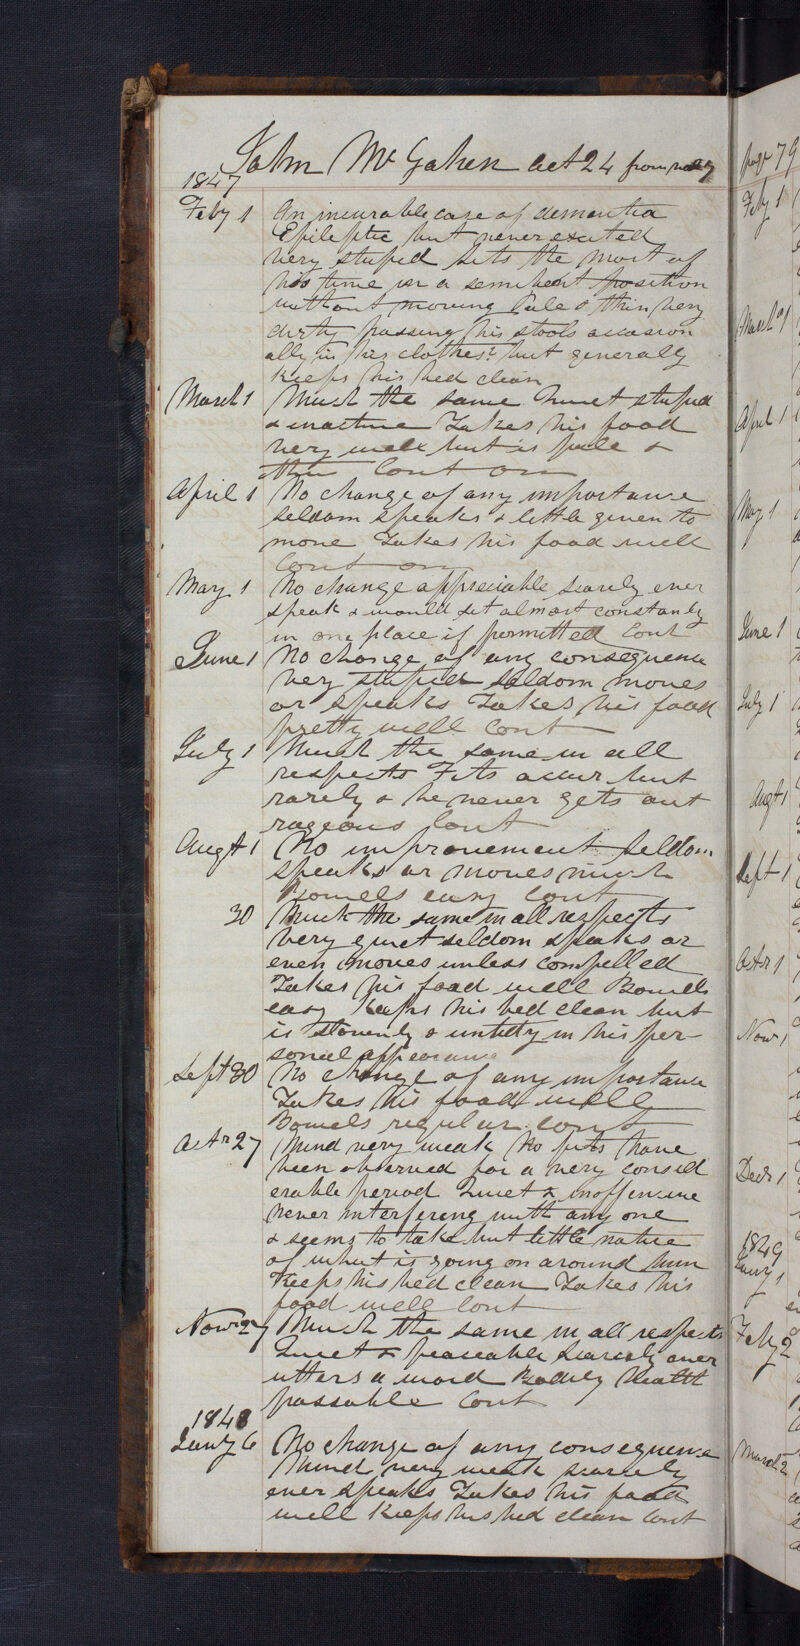 John Mc Gahen aet 24 from
1847
Feby 1 An incurable case of dementia
Epileptic but never excited
very stupid sits the most of
his time in a semi bent position
without moving Pale & thin very
dirty passing his stools occasion
ally in his clothes but generally
keeps his bed clean
March 1 Much the same Quiet stupid
& inactive Takes his food
very well but is pale &
thin Cont on
April 1 No change of any importance
seldom speaks & little given to
move Takes his food well
Cont on
May 1 No change appreciable scarely ever
speak & would set almost constantly
in one place if permitted Cont
June 1 No change of any consequence
very stupid seldom moves
or speaks Takes his food
pretty well Cont
July 1 Much the same in all
respects Fits occur but
rarely & he never gets out
rageous Cont
Augt 1 No improvement Seldom
speaks or moves much
Bowels easy Cont
30 Much the same in all respects
very quiet seldom speaks or
even moves unless compelled
Takes his food well Bowels
easy Keeps his bed clean but
is slovenly & untidy in his per-
sonal appearance
Sept 30 No change of any importance
Takes his food well
Bowels regular Cont
Octr 27 Mind very weak No fits have
been observed for a very consid
erable period Quiet & inoffensive
never interfering with any one
& seems to take but little notice
of what is going on around him
Keeps his bed clean Takes his
food well Cont
Novr 27 Much the same in all respects
Quiet & peaceable Scarcely ever
utters a word Bodily Health
passable Cont
1848
Jany 6 No change of any consequence
Mind very weak scarcely
ever speaks Takes his food
well Keeps his bed clean Cont
page 79
Feby 1
March 1
April 1
May 1
June 1
July 1
Augt 1
Sept 1
Octr 1
Nov 1
Decr 1
1849
Jany 1
Feby 2
March 2